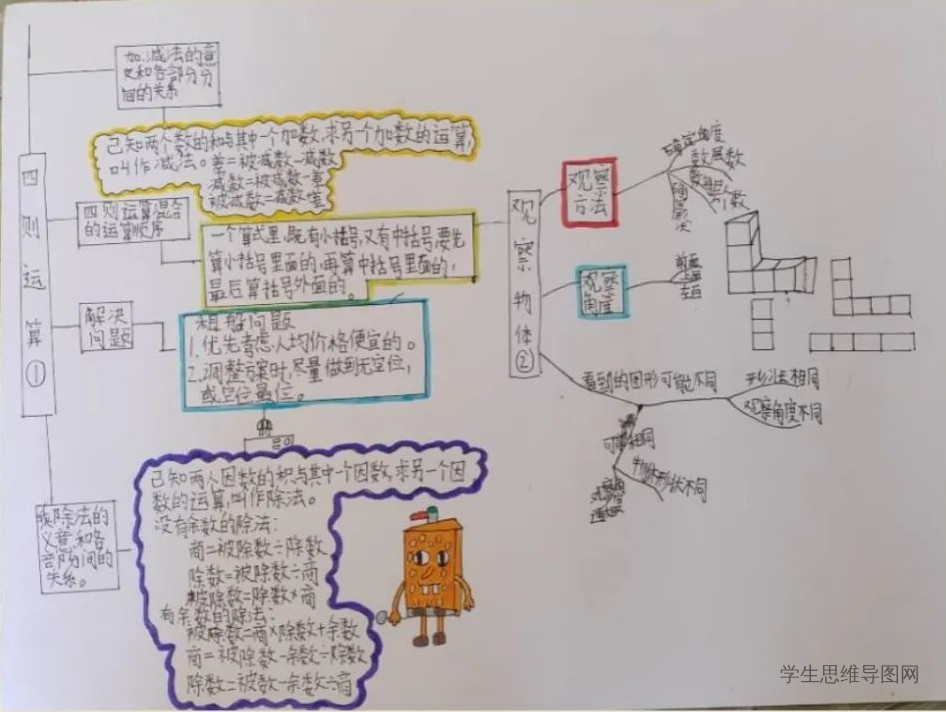 四则运算①
加、减法的意
义和各部分分
间的关系
己知两个数的和与其中一个加数,求另一个加数的运算,
叫作减法。差=被减数-减数
减数=被减数-差
被减数=减数+差
四则运算混合
的运算顺序
一个算式里,既有小括号,又有中括号,要先
算小括号里面的,再算中括号里面的,
最后算括号外面的。
解决
问题
租船问题
1.优先考虑人均价格便宜的。
2.调整方案时,尽量做到无空位,
或空位最少。
除法的
义音和各
间的
关系。
己知两人因数的积与其中一个因数,求另一个因
数的运算,叫作除法。
没有余数的除法:
商=被除数÷除数
除数=被除数÷商
被除数=除数×商
有余数的除法:
被除数=商×除数+余数
商=被除数-余数÷除数
除数=被数-余数÷商
观察物体②
观察
方法
确定角度
数层数
数个数
观察
角度
前面
上面
左面
看到的图形可能不同
形状相同
观察角度不同
可能相同
物体形状不同
学生思维导图网